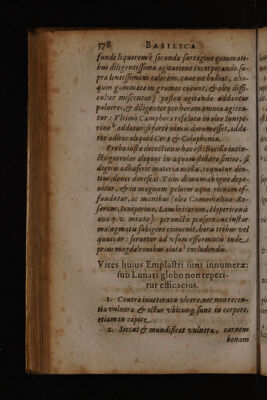 378 BASILICA
funde liquorem è secunda sartagine gummati-
bus diligentissima agitatione incorporando su-
pra lentissimum calorem, caue ne bulliat, alio-
quin gummata in grumos coëunt, & oleo diffi-
culter miscentur) postea agitando addantur
pulueres, & diligenter per horam omnia agiten-
tur: Vltimò Camphora resoluta in oleo Iunipe-
rino addatur: si fortè nimis durum esset, adda-
tur adhuc aliquid Ceræ & Colophoniæ.
Proba iustæ decoctionis hæc est: Bacillo intin-
cto guttulas aliquot in aquam stillare sinito, si
digitis adhæserit materia nobili, coquatur diu-
tius, donec durescat. Tum demum ab igne depo-
nitur, & in magnum peluim aqua plenam ef-
funditur, ac manibus (oleo Camomillino, Ro-
saceo, Iuniperino, Lumbricorum, Hypericonis
ana q. v. mixto) perunctis pinsere, ac instar
malagmatis subigere conuenit, horis tribus vel
quatuor: seruetur ad vsum efformatis inde
prius magdaleonibus aluta includendo.
Vires huius Emplastri sunt innumeræ:
sub Lunari globo non reperi-
tur efficacius.
1. Contra inueterata vlcera, nec non recen-
tia vulnera & ictus vbicunq; sunt in corpore,
etiam in capite.
2. Siccat & mundificat vulnera, carnem
bonam